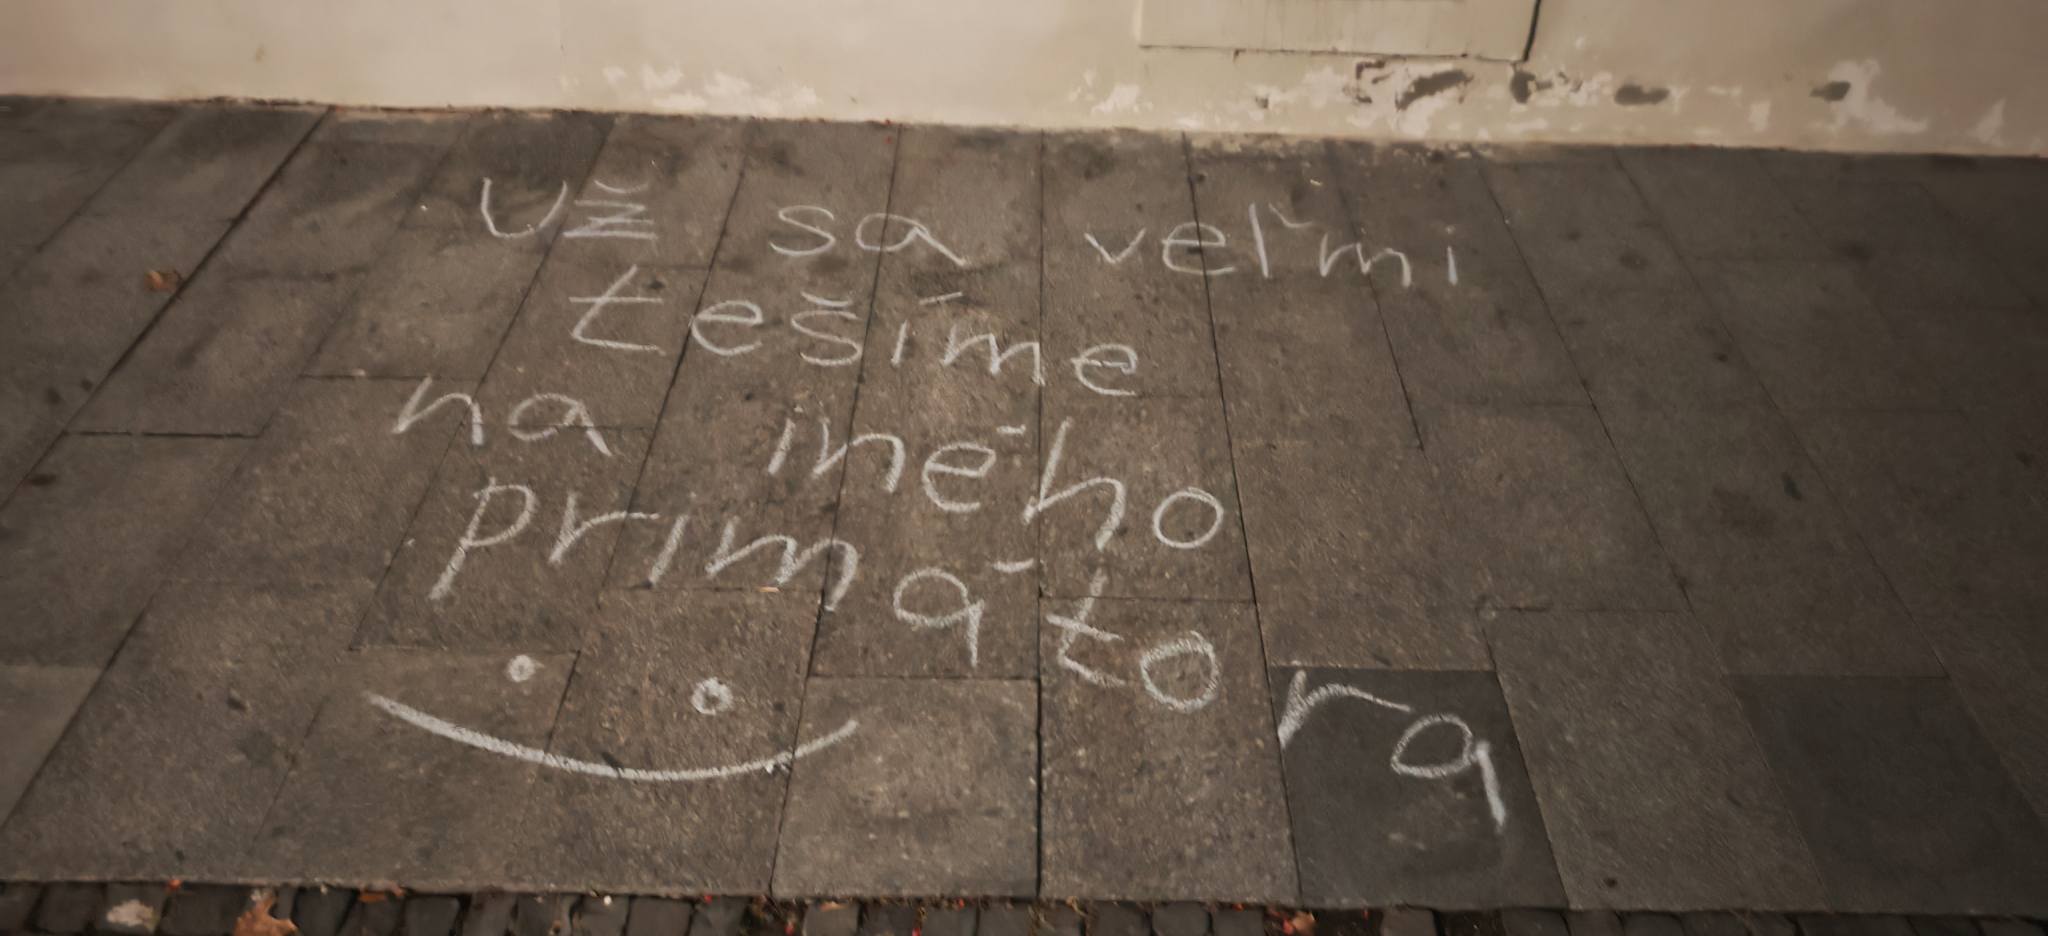 Už sa veľmi
tešíme
na iného
primátora